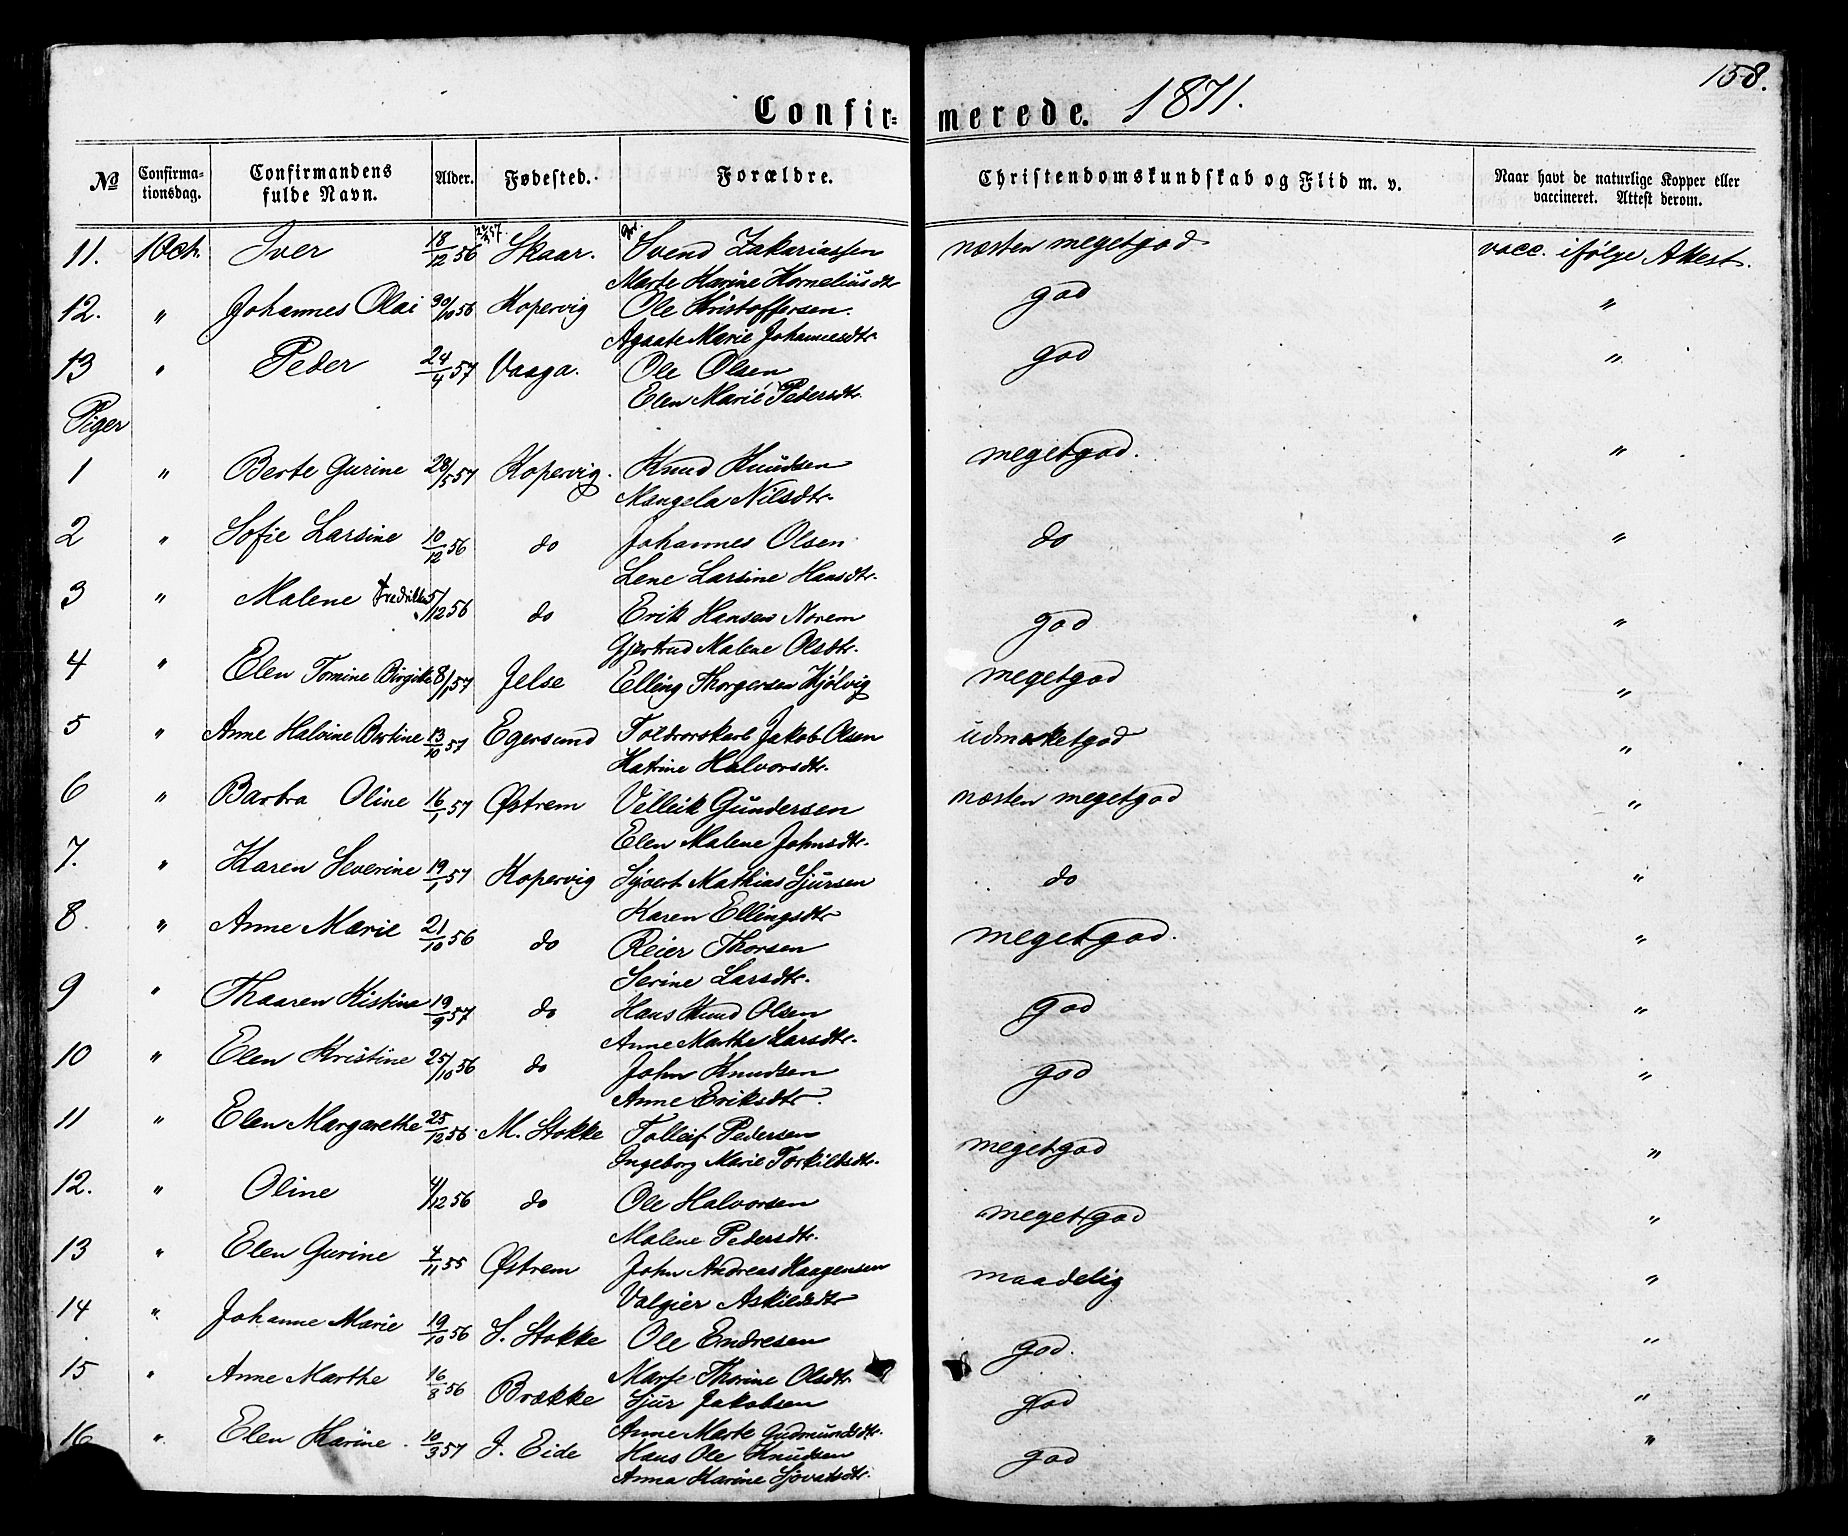 158.
Confir= merede. 1871.
No Confirma-tionsdag. Confirmandens fulde Navn. Alder. Fødested. Forældre. Christendomskundskab og Flid m. v. Naar havt de naturlige Kopper eller vaccineret. Attest derom.
11. 1 Oct. Iver 18/12 56 Skaar. Svend Zakariassen næsten megetgod vacc. ifølge Attest.
Marte Karine Korneliusdtr
12. " Johannes Olai 30/10 56 Kopervig Ole Kristoffersen. god "
Agaate Marie Johannesdtr
13 " Peder 24/4 57 Vaaga. Ole Olsen god "
Elen Marie Pedersdtr.
Piger
1 " Berte Gurine 28/5 57 Kopervig. Knud Knudsen megetgod. "
Mangela Nilsdtr.
2 " Sofie Larsine 10/12 56 do Johannes Olsen do "
Lene Larsine Hansdtr.
3 " Malene Fredrikke 5/12 56 do Erik Hansen Norem god "
Gjertrud Malene Olsdtr.
4 " Elen Tomine Birgitte 8/1 57 Jelse Elling Thorgersen Kjølvig megetgod "
5 " Anne Halvine Bertine 13/10 57 Egersund Toldrorskarl Jakob Olsen udmærketgod "
Katrine Halvorsdtr.
6 " Barbra Oline 16/1 57 Østrem Velleik Gundersen næsten megetgod "
Elen Malene Johnsdtr.
7. " Karen Severine 19/1 57 Kopervig Syvert Mathias Sjursen do "
Karen Ellingsdtr
8. " Anne Marie 21/10 56 do Reier Thorsen megetgod. "
Serine Larsdtr.
9 " Thaaren Kistina 19/9 57 do Hans Knud Olsen god "
Anne Marthe Larsdtr.
10 " Elen Kristine 25/10 56 do John Knudsen god "
Anne Eriksdtr.
11 " Elen Margarethe 25/12 56. M. Stokke Tolleif Pedersen megetgod "
Ingeborg Marie Torkildsdtr.
12. " Oline 4/12 56 do Ole Halvorsen megetgod "
Malene Pedersdtr.
13 " Elen Gurine 4/11 55 Østrem John Andreas Haagensen maadelig "
Valgier Askildsdtr
14 " Johanne Marie 19/10 56 S. Stokke Ole Endresen god. "
Marte Thorine Olsdtr
15 " Anne Marthe 16/8 56 Brække Sjur Jakobsen god "
Anne Marte Gudmundsdtr.
16 " Elen Karine. 10/3 57 J. Eide Hans Ole Knudsen god "
Anna Karine Sjovatsdtr.